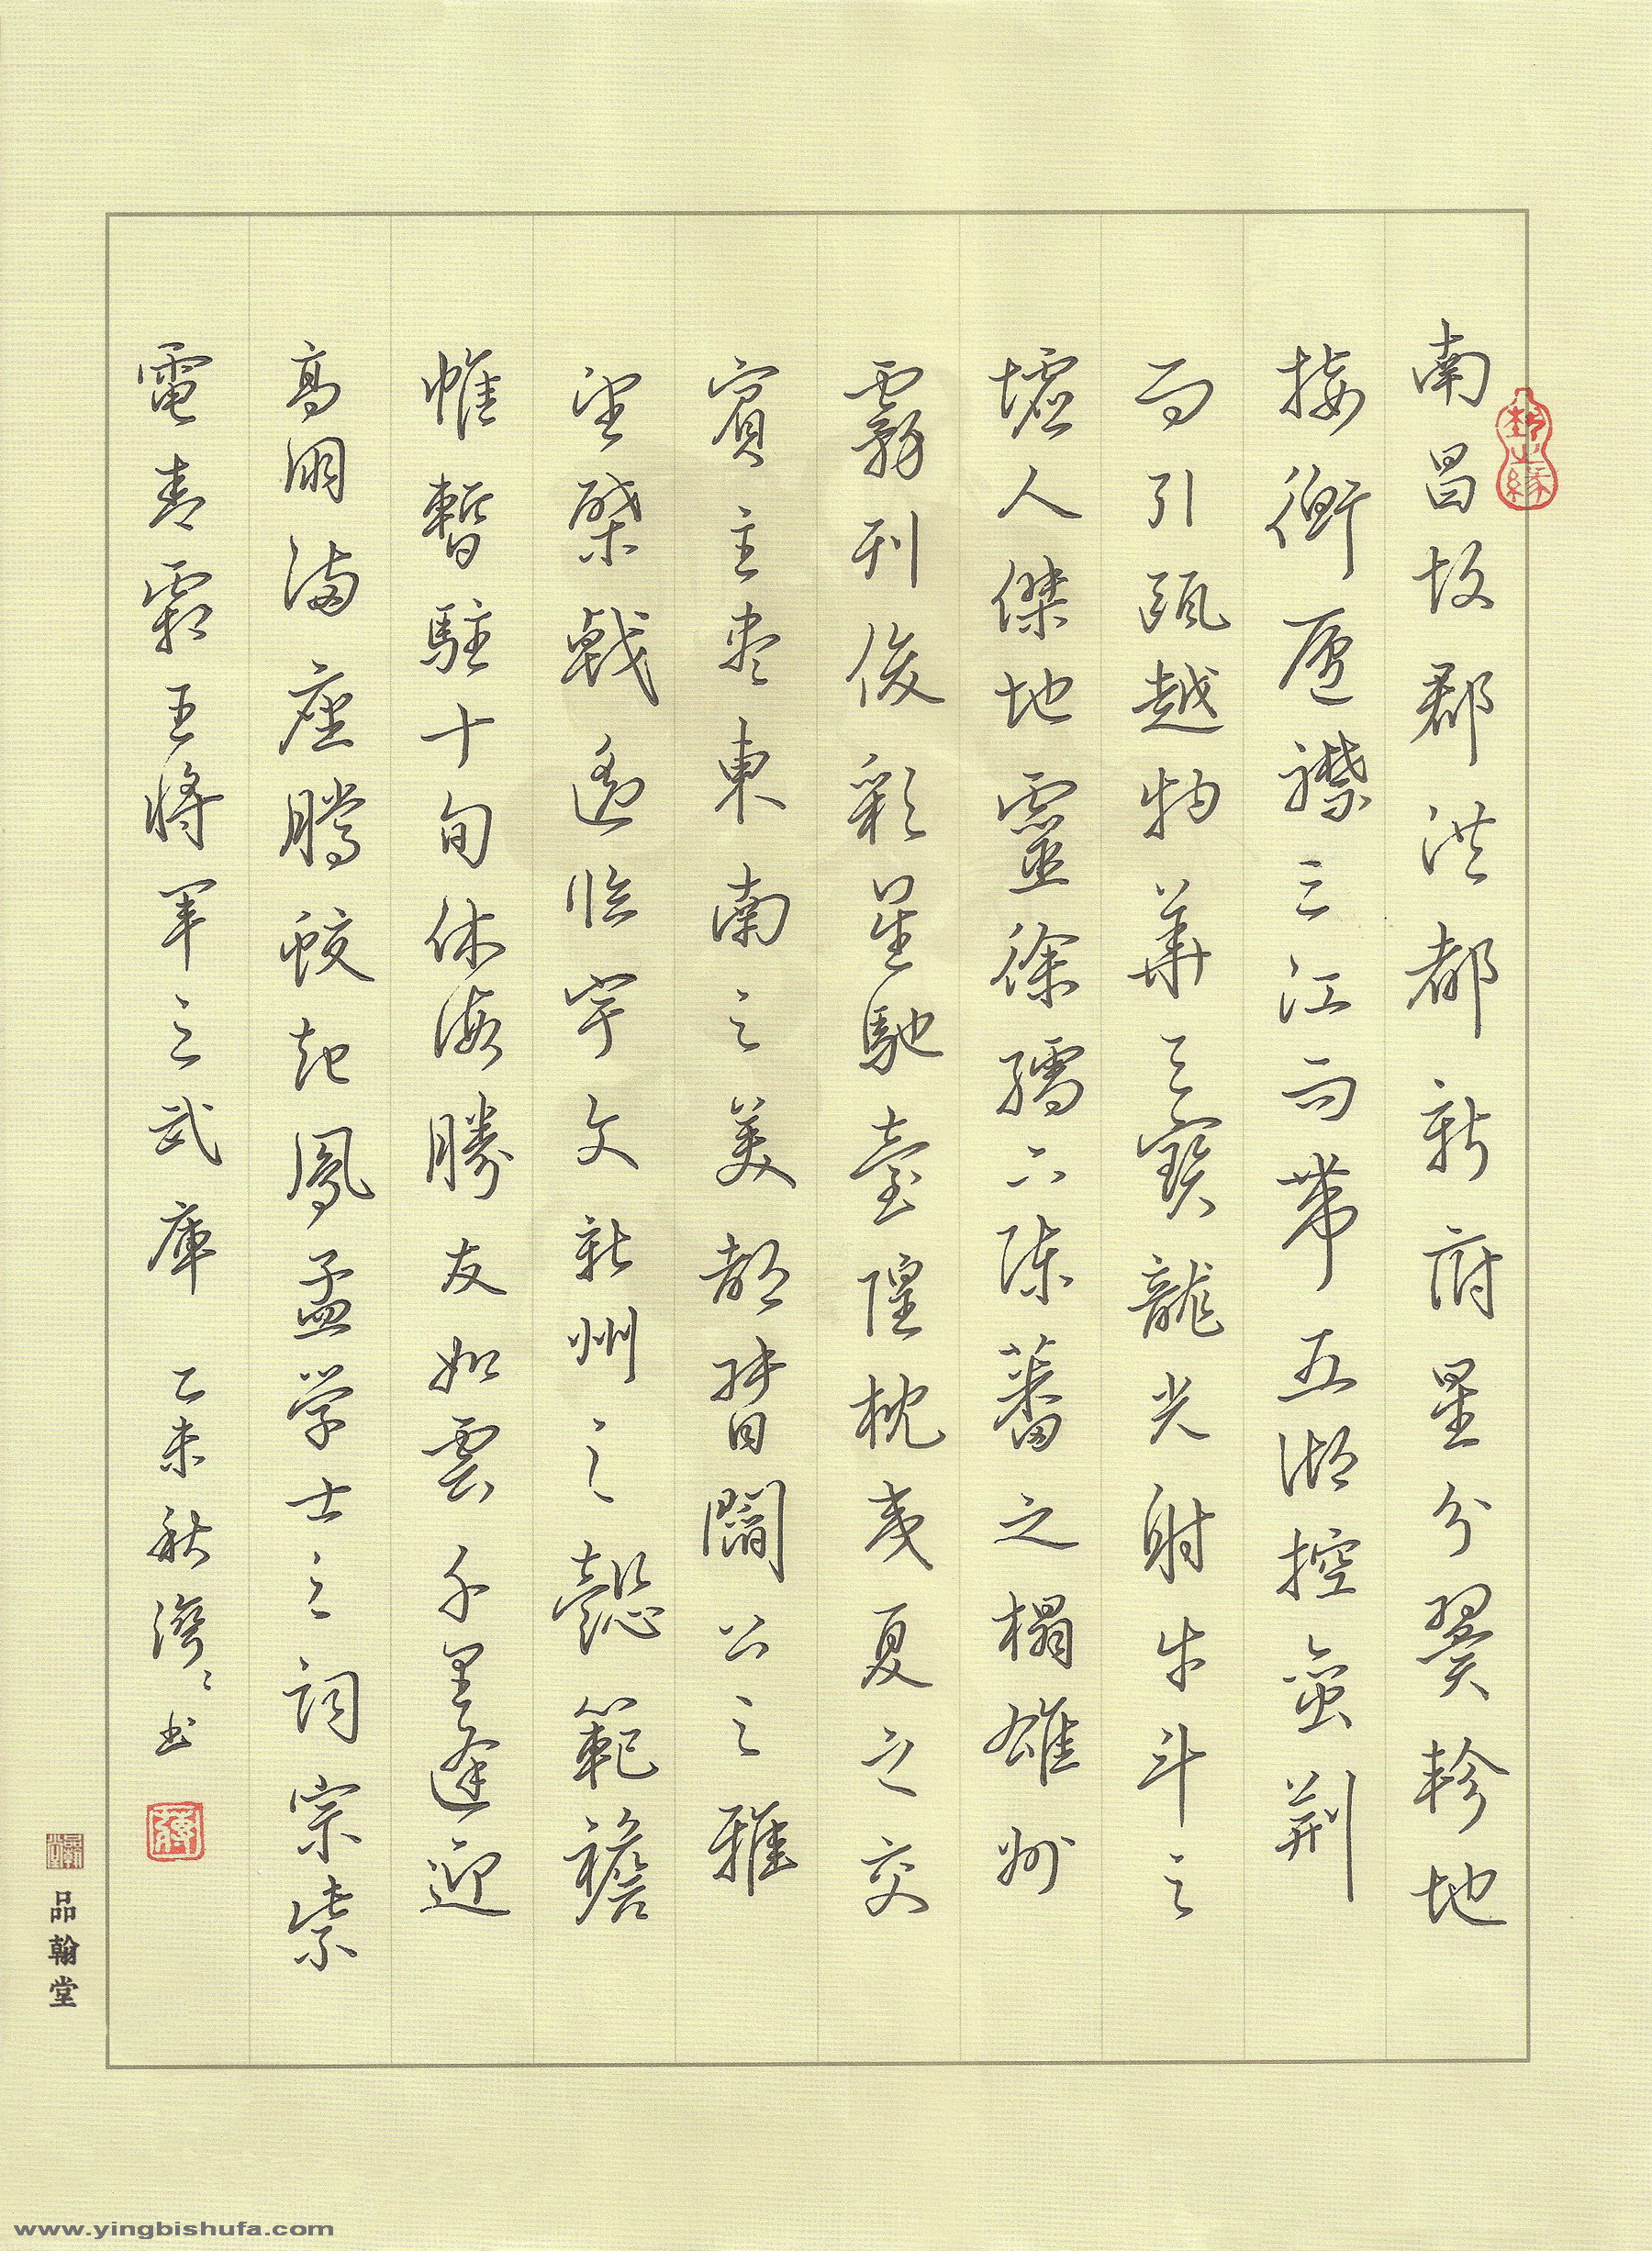 南昌故郡洪都新府星分翼軫地
接衡廬襟三江而帶五湖控蛮荊
而引甌越物華天寶龍光射牛斗之
墟人傑地靈徐孺下陳蕃之榻雄州
霧列俊彩星馳臺隍枕夷夏之交
賓主盡東南之美都督閻公之雅
望棨戟遙臨宇文新州之懿範襜
帷暫駐十旬休假勝友如雲千里逢迎
高朋滿座騰蛟起鳳孟学士之詞宗紫
電青霜王將軍之武庫 乙未秋书
品翰堂
www.yingbishufa.com